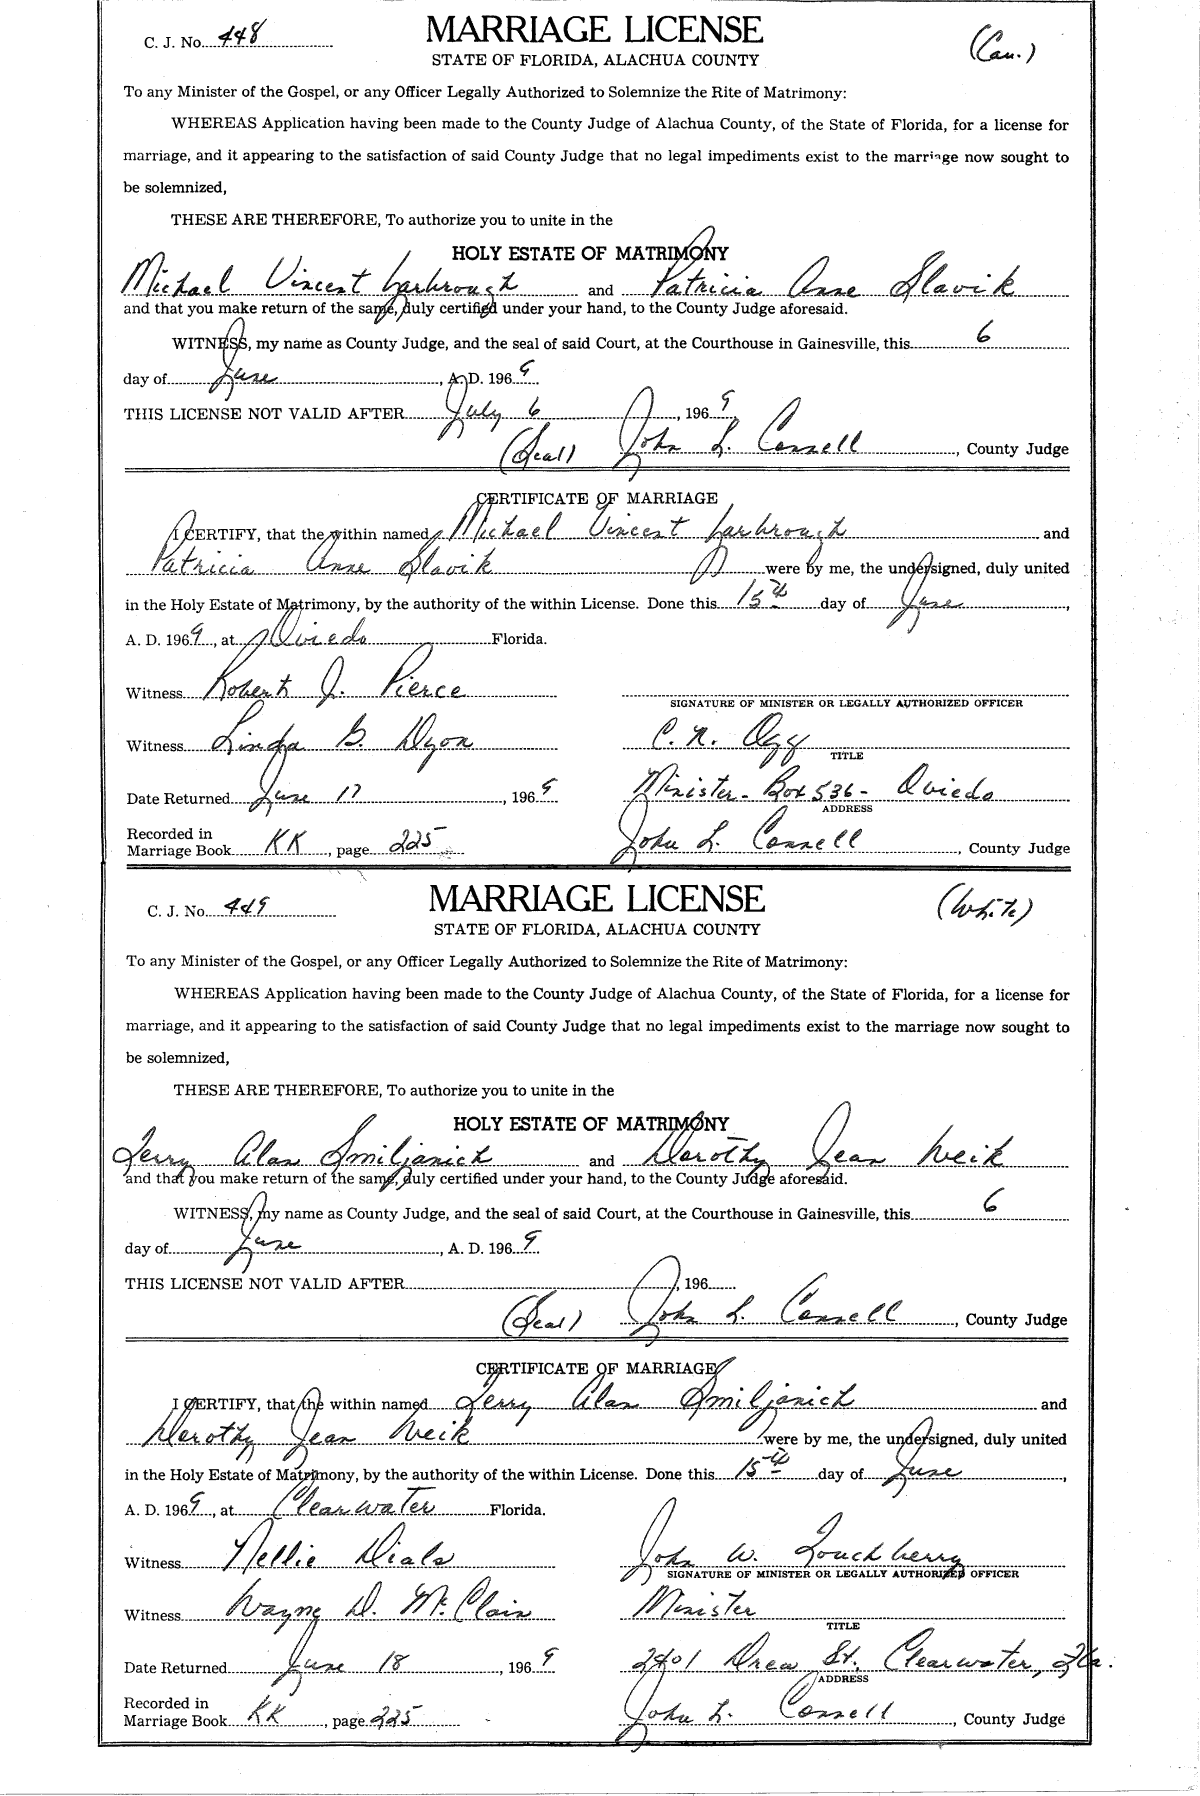 C. J. No. 448 MARRIAGE LICENSE (Cau.)
STATE OF FLORIDA, ALACHUA COUNTY
To any Minister of the Gospel, or any Officer Legally Authorized to Solemnize the Rite of Matrimony:
WHEREAS Application having been made to the County Judge of Alachua County, of the State of Florida, for a license for
marriage, and it appearing to the satisfaction of said County Judge that no legal impediments exist to the marriage now sought to
be solemnized,
THESE ARE THEREFORE, To authorize you to unite in the
HOLY ESTATE OF MATRIMONY
Michael Vincent Yarbrough and Patricia Anne Slavik
and that you make return of the same, duly certified under your hand, to the County Judge aforesaid.
WITNESS, my name as County Judge, and the seal of said Court, at the Courthouse in Gainesville, this 6
day of June, A. D. 1969.
THIS LICENSE NOT VALID AFTER July 6, 1969
(Seal) John L. Connell, County Judge
CERTIFICATE OF MARRIAGE
I CERTIFY, that the within named Michael Vincent Yarbrough and
Patricia Anne Slavik were by me, the undersigned, duly united
in the Holy Estate of Matrimony, by the authority of the within License. Done this 15th day of June,
A. D. 1969, at Oviedo Florida.
Witness Robert J. Pierce
SIGNATURE OF MINISTER OR LEGALLY AUTHORIZED OFFICER
Witness Linda G. Dyon C. N. Ogg
TITLE
Date Returned June 17, 1969 Minister - Box 536 - Oviedo
ADDRESS
Recorded in
Marriage Book KK, page 225 John L. Connell, County Judge
C. J. No. 449 MARRIAGE LICENSE (White)
STATE OF FLORIDA, ALACHUA COUNTY
To any Minister of the Gospel, or any Officer Legally Authorized to Solemnize the Rite of Matrimony:
WHEREAS Application having been made to the County Judge of Alachua County, of the State of Florida, for a license for
marriage, and it appearing to the satisfaction of said County Judge that no legal impediments exist to the marriage now sought to
be solemnized,
THESE ARE THEREFORE, To authorize you to unite in the
HOLY ESTATE OF MATRIMONY
Terry Alan Smiljanich and Dorothy Jean Weik
and that you make return of the same, duly certified under your hand, to the County Judge aforesaid.
WITNESS, my name as County Judge, and the seal of said Court, at the Courthouse in Gainesville, this 6
day of June, A. D. 1969.
THIS LICENSE NOT VALID AFTER, 196
(Seal) John L. Connell, County Judge
CERTIFICATE OF MARRIAGE
I CERTIFY, that the within named Terry Alan Smiljanich and
Dorothy Jean Weik were by me, the undersigned, duly united
in the Holy Estate of Matrimony, by the authority of the within License. Done this 15th day of June,
A. D. 1969, at Clearwater Florida.
Witness Nellie Dials John W. Touchberry
SIGNATURE OF MINISTER OR LEGALLY AUTHORIZED OFFICER
Witness Wayne D. McClain Minister
TITLE
Date Returned June 18, 1969 2401 Drew St. Clearwater, Fla.
ADDRESS
Recorded in
Marriage Book KK, page 225 John L. Connell, County Judge